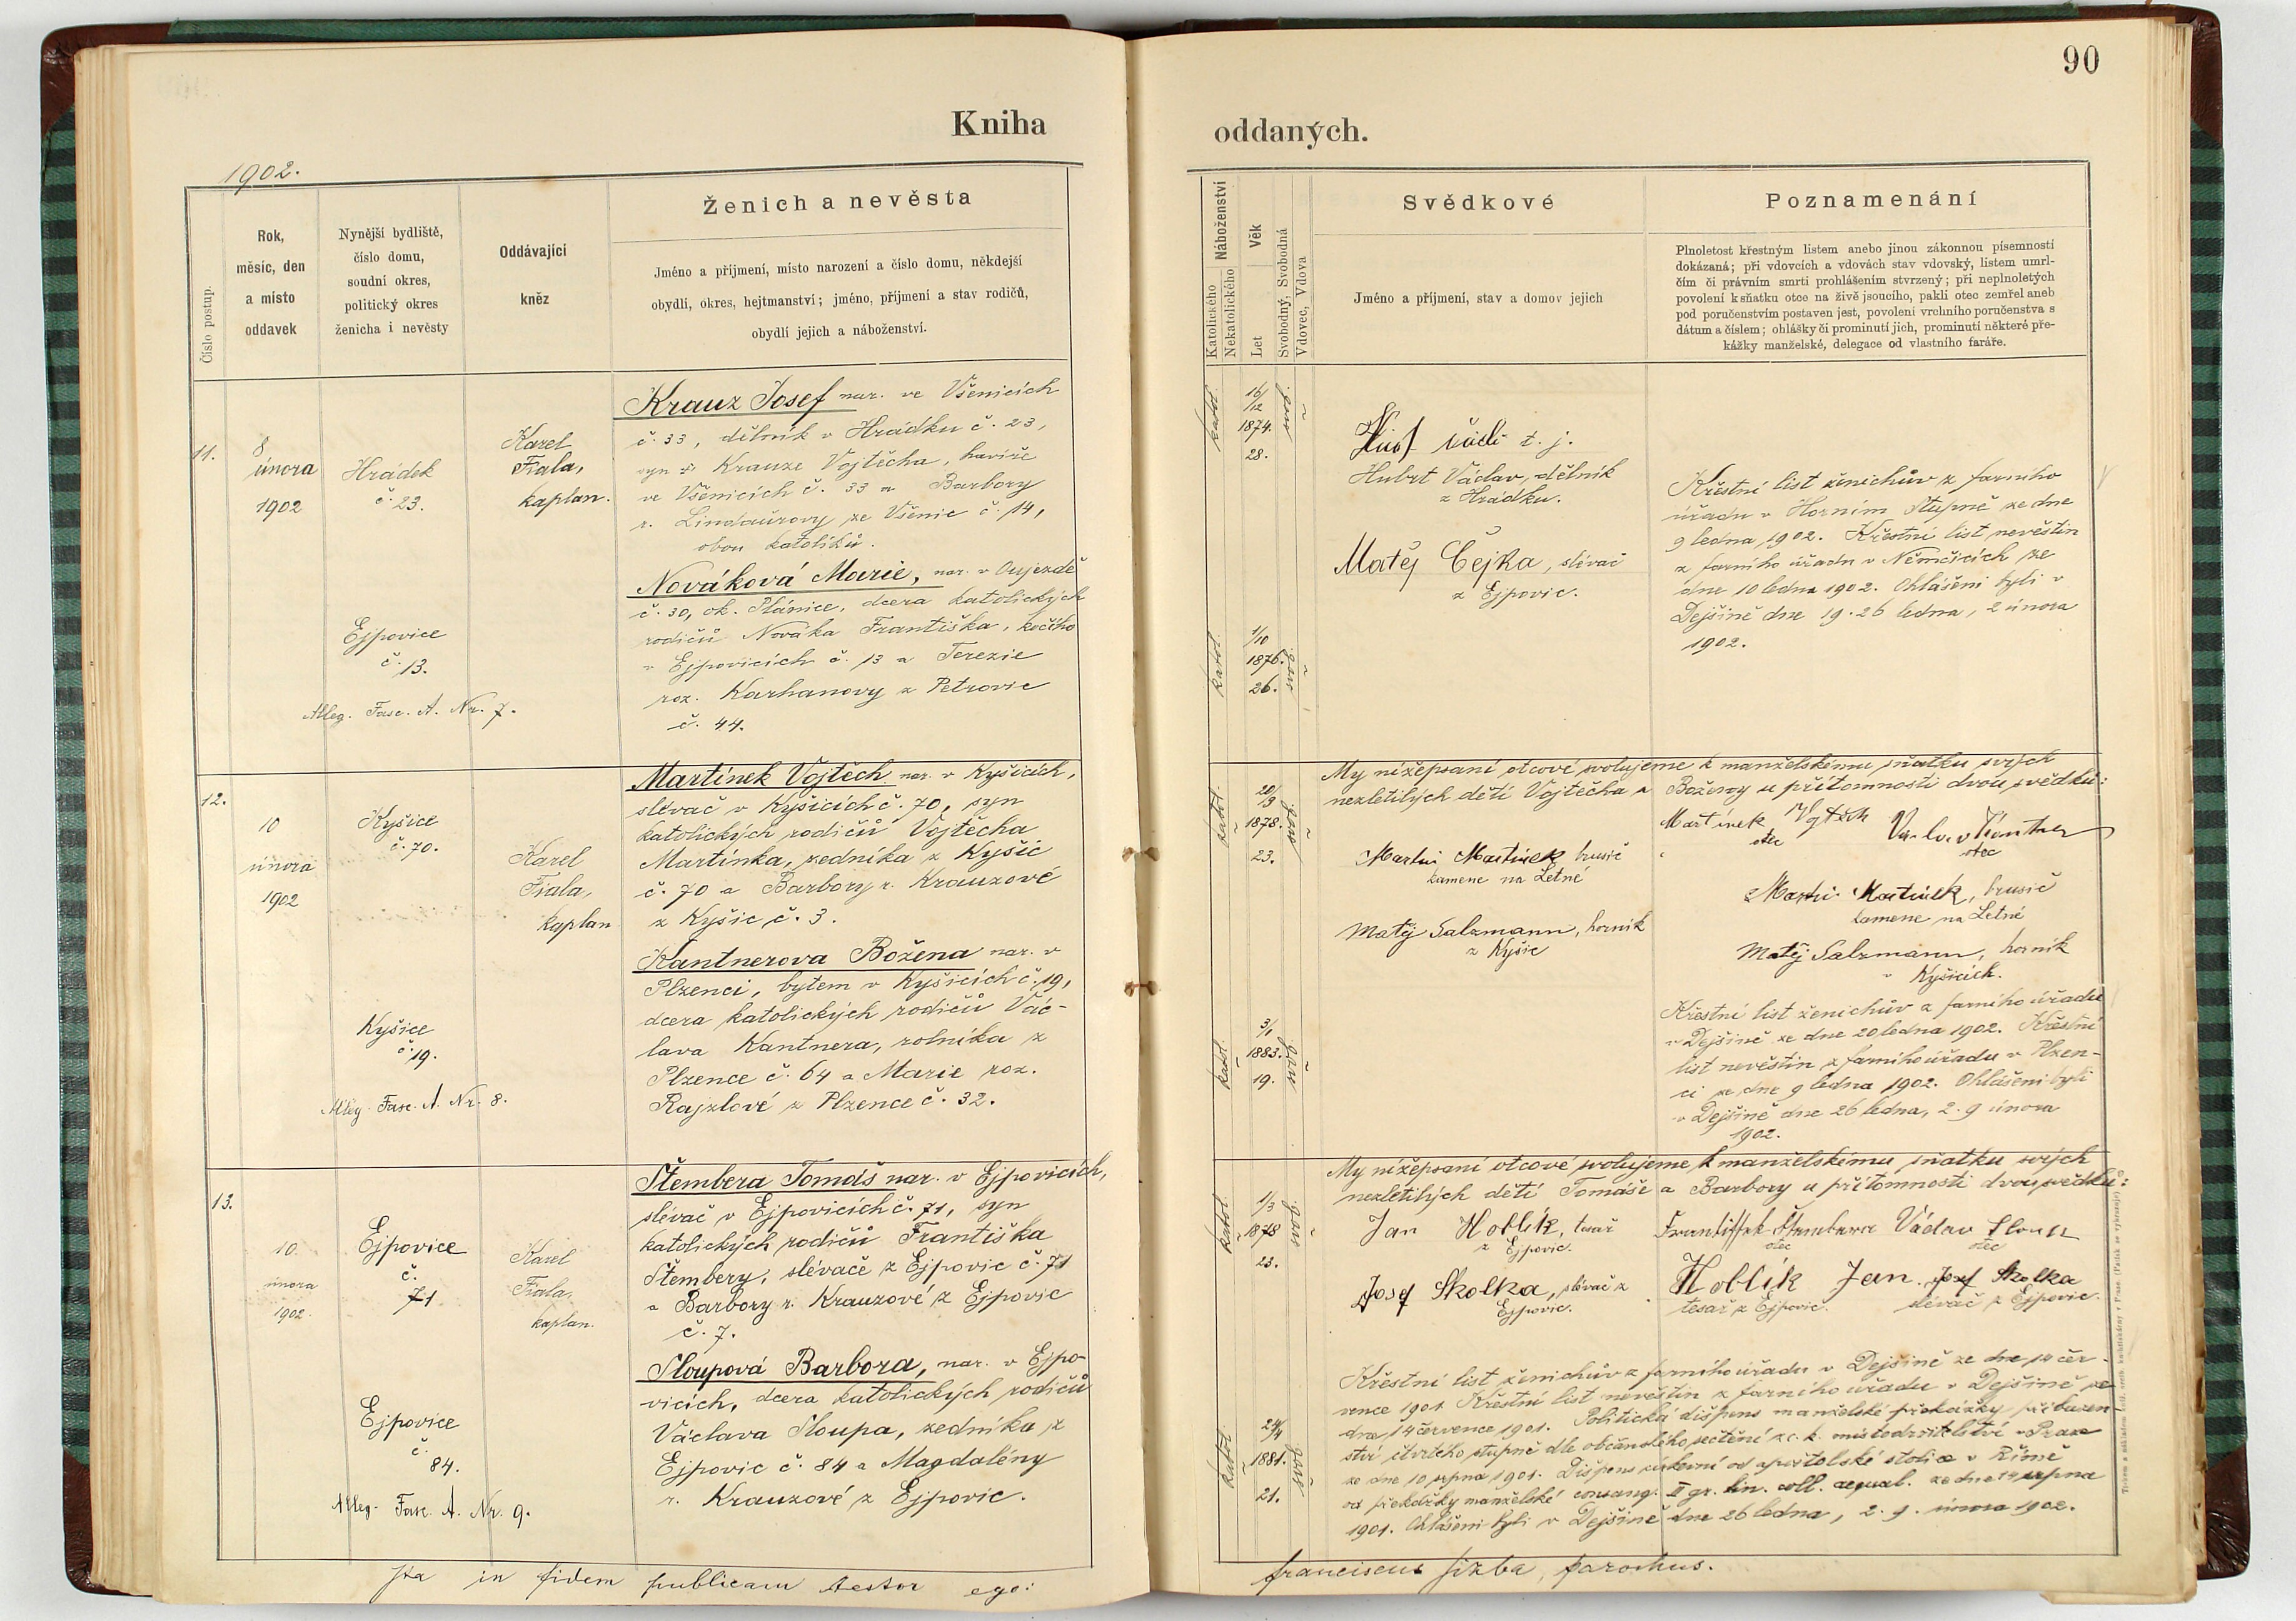 90
Kniha
oddaných.
1902.
Číslo postup.
Rok,
měsíc, den
a místo
oddavek
Nynější bydliště,
číslo domu,
soudní okres,
politický okres
ženicha i nevěsty
Oddávající
kněz
Ženich a nevěsta
Jméno a příjmení, místo narození a číslo domu, někdejší
obydlí, okres, hejtmanství; jméno, příjmení a stav rodičů,
obydlí jejich a náboženství.
Náboženství
Katolického
Nekatolického
Věk
Let
Svobodný, Svobodná
Vdovec, Vdova
Svědkové
Jméno a příjmení, stav a domov jejich
Poznamenání
Plnoletost křestným listem anebo jinou zákonnou písemností
dokázaná; při vdovcích a vdovách stav vdovský, listem umrl-
čím či právním smrti prohlášením stvrzený; při neplnoletých
povolení k sňatku otce na živě jsoucího, pakli otec zemřel aneb
pod poručenstvím postaven jest, povolení vrchního poručenstva s
dátum a číslem; ohlášky či prominutí jich, prominutí některé pře-
kážky manželské, delegace od vlastního faráře.
11.
8
února
1902
Hrádek
č. 23.
Karel
Fiala,
kaplan.
Krauz Josef nar. ve Všenicích
č. 33, dělník v Hrádku č. 23,
syn Krauze Vojtěcha, havíře
ve Všenicích č. 33 a Barbory
r. Lindaurovy ze Všenic č. 14,
obou katolíků.
Nováková Marie, nar. v Oujezdě
č. 30, ok. Plánice, dcera katolických
rodičů Nováka Františka, kočího
v Ejpovicích č. 13 a Terezie
roz. Karhanovy z Petrovic
č. 44.
Ejpovice
č. 13.
Alleg. Fasc. A. Nr. 7.
katol.
16/12
1874.
28.
svob.
katol.
1/10
1876.
26.
svob.
t. j.
Hubrt Václav, dělník
z Hrádku.
Matěj Čejka, slévač
z Ejpovic.
Křestní list ženichův z farního
úřadu v Horním Stupně ze dne
9 ledna 1902. Křestní list nevěstin
z farního úřadu v Němčicích ze
dne 10 ledna 1902. Ohlášeni byli v
Dejšině dne 19. 26 ledna, 2 února
1902.
12.
10
února
1902
Kyšice
č. 70.
Karel
Fiala,
kaplan
Martínek Vojtěch nar. v Kyšicích,
slévač v Kyšicích č. 70, syn
katolických rodičů Vojtěcha
Martínka, zedníka z Kyšic
č. 70 a Barbory r. Krauzové
z Kyšic č. 3.
Kantnerova Božena nar. v
Plzenci, bytem v Kyšicích č. 19,
dcera katolických rodičů Vác-
lava Kantnera, rolníka z
Plzence č. 64 a Marie roz.
Rajzlové z Plzence č. 32.
Kyšice
č. 19.
Alleg. Fasc. A. Nr. 8.
katol.
20/3
1878.
23.
svob.
katol.
3/1
1883.
19.
svob.
My nížepsaní otcové svolujeme k manželskému sňatku svých
nezletilých dětí Vojtěcha a Boženy u přítomnosti dvou svědků:
Martínek Vojtěch
otec
Václav Kantner
otec
Martin Martinek brusič
kamene na Letné
Matěj Salzmann, horník
z Kyšic
Martin Martinek, brusič
kamene na Letné
Matěj Salzmann, horník
v Kyšicích.
Křestní list ženichův z farního úřadu
v Dejšině ze dne 20 ledna 1902. Křestní
list nevěstin z farního úřadu v Plzen-
ci ze dne 9 ledna 1902. Ohlášeni byli
v Dejšině dne 26 ledna, 2. 9 února
1902.
13.
10.
února
1902
Ejpovice
č.
71
Karel
Fiala,
kaplan.
Štembera Tomáš nar. v Ejpovicích,
slévač v Ejpovicích č. 71, syn
katolických rodičů Františka
Štembery, slévače z Ejpovic č. 71
a Barbory r. Krauzové z Ejpovic
č. 7.
Sloupová Barbora, nar. v Ejpo-
vicích, dcera katolických rodičů
Václava Sloupa, zedníka z
Ejpovic č. 84 a Magdalény
r. Krauzové z Ejpovic.
Ejpovice
č.
84.
Alleg. Fasc. A. Nr. 9.
katol.
1/3
1878
23.
svob.
katol.
24/4
1881.
21.
svob.
My nížepsaní otcové svolujeme k manželskému sňatku svých
nezletilých dětí Tomáše a Barbory u přítomnosti dvou svědků:
Jan Hoblík, tesař
z Ejpovic.
Josef Skolka, slévač z
Ejpovic.
František Štembera
otec
Václav Sloup
otec
Hoblík Jan.
tesař z Ejpovic.
Josef Skolka
slévač z Ejpovic.
Křestní list ženichův z farního úřadu v Dejšině ze dne 14 čer-
vence 1901. Křestní list nevěstin z farního úřadu v Dejšině ze
dne 14 července 1901. Politická dišpens manželské překážky příbuzen
ství čtvrtého stupně dle občanského sečtění z c. k. místodržitelství v Praze
ze dne 10 srpna 1901. Dišpens církevní od apoštolské stolice v Římě
od překážky manželské consang. II gr. lin. coll. aequal. ze dne 14 srpna
1901. Ohlášeni byli v Dejšině dne 26 ledna, 2. 9. února 1902.
Ita in fidem publicam testor ego:
franciscus Sizba, parochus.